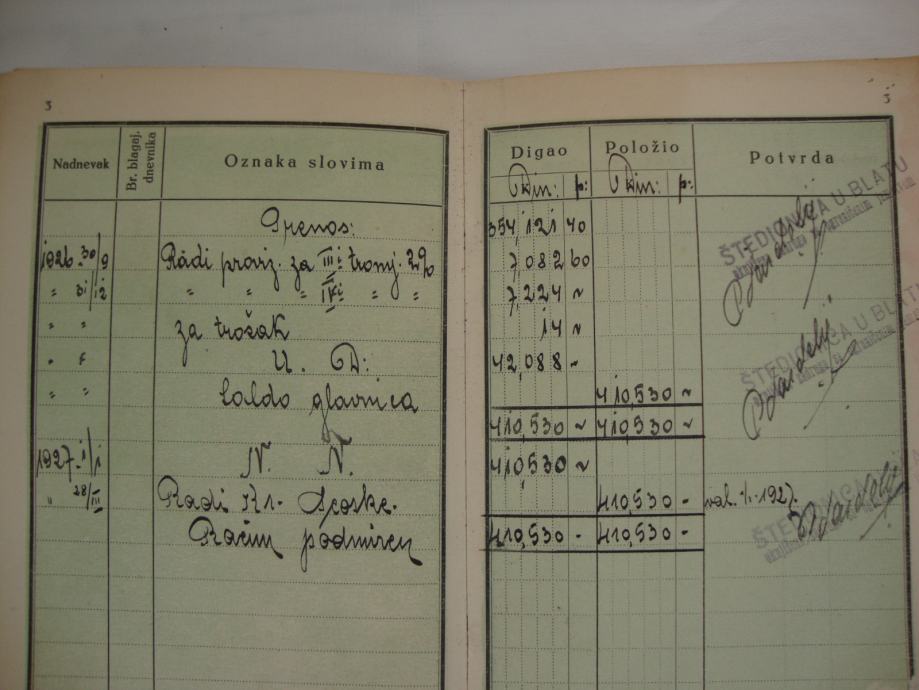 3
3
Nadnevak Br. blagaj. dnevnika Oznaka slovima Digao Položio Potvrda
Din: p: Din: p:
Prenos: 354,121 40
1926. 30/9 Radi proviz. za III: tromj. 2% 7,082 60
" 31/12 " " " IV: " " 7,224 ~
" " za trošak 14 ~
" " U. D: 42,088 -
" " Saldo glavnica 410,530 ~
410,530 ~ 410,530 ~
1927. 1/1 N. N. 410,530 ~
" 28/III Radi Kr. 410,530 - val. 1/1. 1927.
Račun podmiren 410,530 - 410,530 -
ŠTEDIONICA U BLATU
ŠTEDIONICA U BLATU
ŠTEDIONICA